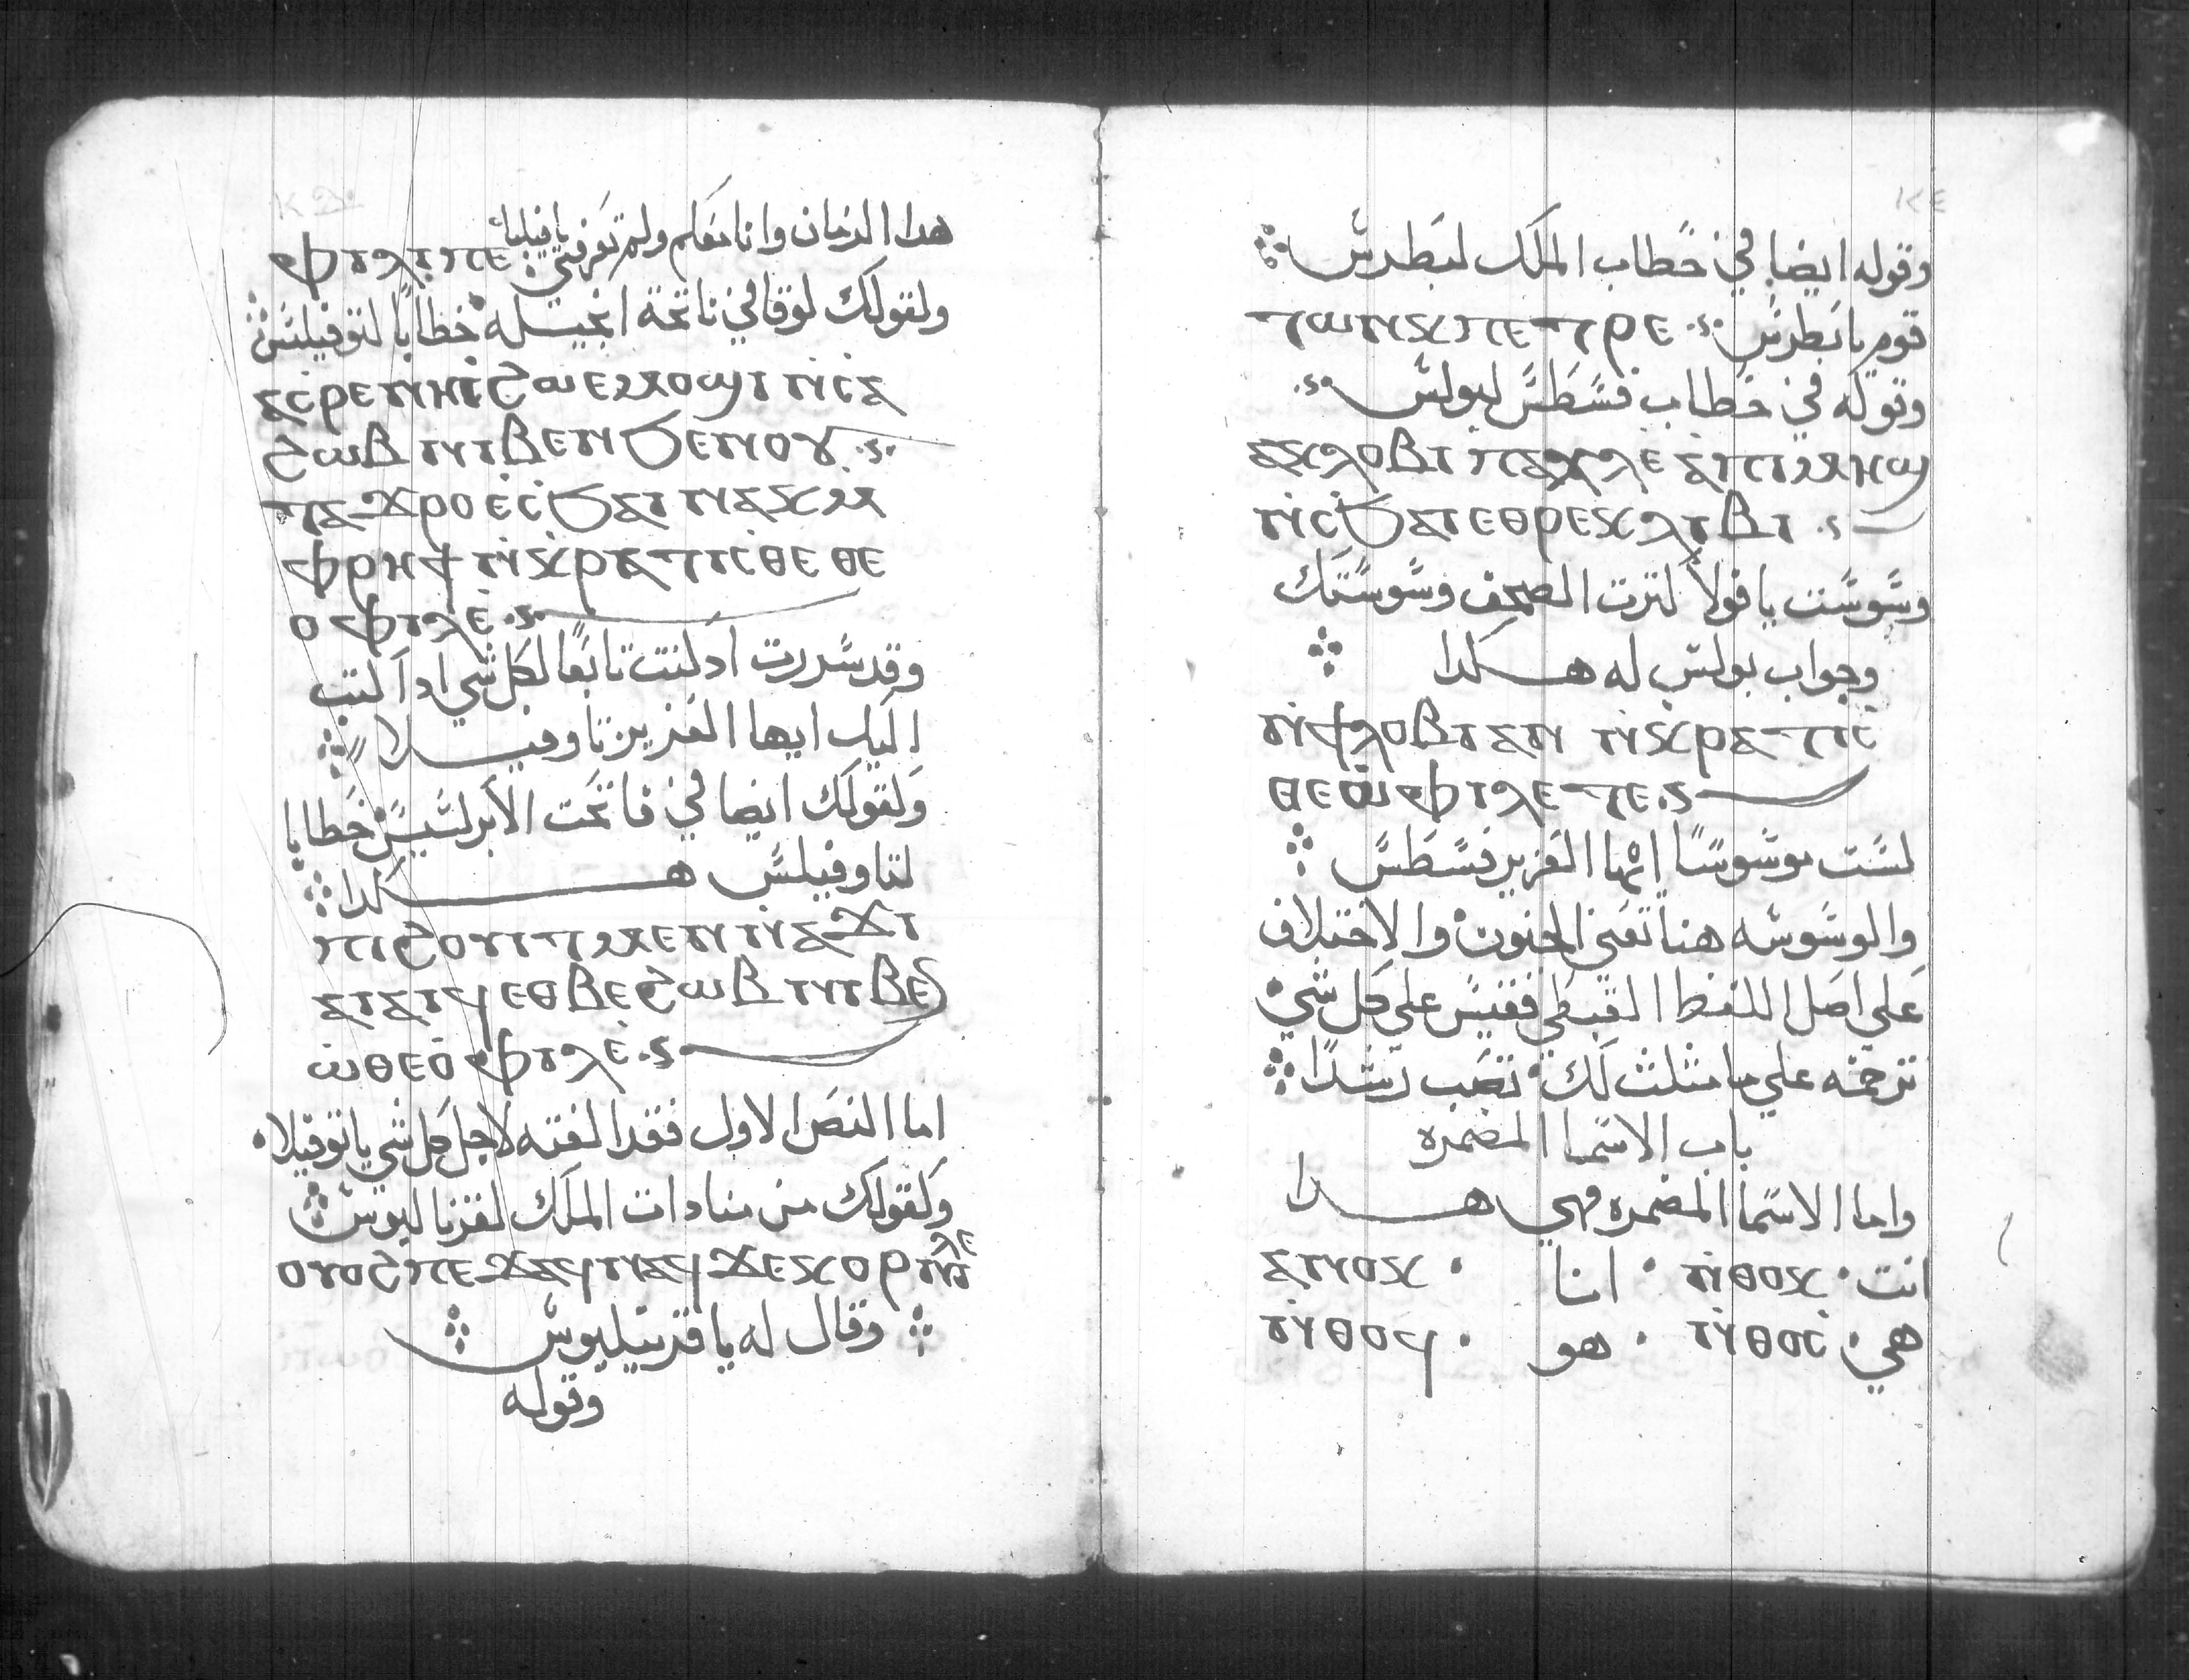 هدا الزمان وانا معكم ولم تعرفني يا فيلبا ⲫⲓⲗⲓⲡⲉ
ولقولك لوقا في فاتحة انجيله خطابا لتوفيلس
ⲁⲥⲣⲉⲛⲏⲓ ϩⲱ ⲉⲙⲟϣⲓ ⲛ̇ⲥⲁ
ϩⲱⲃ ⲛⲓⲃⲉⲛ ϧⲉⲛⲟⲩ
ⲧⲁϫⲣⲟ ⲉⲥ̇ϧⲁⲓ ⲛⲁⲕ ⲙ
ⲫⲣⲏϯ ⲛ̇ⲕⲣⲁⲧⲓⲥⲑⲉ ⲑⲉ
ⲟⲫⲓⲗⲉ
وقد سررت اد كنت تابعا لكل شي اد اكتب
اليك ايها العزيز تاوفيلا
ولقولك ايضا في فاتحت الابركسيس خطابا
لتاوفيلس هكدا
ⲡⲓϩⲟⲩⲓⲧ ⲙⲉⲛ ⲛ̇ⲥⲁϫⲓ
ⲁⲓⲁⲓϥ ⲉⲑⲃⲉ ϩⲱⲃ ⲛⲓⲃⲉⲛ
ⲱ̇ ⲑⲉⲟ̇ⲫⲓⲗⲉ
اما النص الاول فقد الفته لاجل كل شي يا توفيلا
ولقولك من منادات الملك لقرنا ليوس
ⲟⲩⲟϩ ⲡⲉϫⲁϥ ⲛⲁϥ ϫⲉ ⲕⲟⲣⲛⲏⲗⲉ
وقال له يا قرنيليوس
وقوله
١٢٤
وقوله ايضا في خطاب الملك لبطرس
قوم يا بطرس ⲧⲱⲛⲕ ⲡⲉⲧⲣⲉ
وقوله في خطاب فسطس لبولس
ⲁⲕⲗⲟⲃⲓ ⲡⲁⲩⲗⲉ ⲁⲡⲓⲙⲏϣ
ⲛ̇ⲥ̇ϧⲁⲓ ⲉⲑⲣⲉⲕⲗⲓⲃⲓ
وسوست يا فولا لترت الصحف وسوستك
وجواب بولس له هكدا
ⲛ̇ϯⲗⲟⲃⲓ ⲁⲛ ⲛ̇ⲕⲣⲁⲧⲓⲥ
ⲑⲉ ⲫⲓⲥⲧⲉ
لست موسوسا ايها العزيز فسطس
والوسوسه هنا تعني الجنون والاختلاف
علي اصل اللفظ القبطي فقيس علي كل شي
ترجمته علي ما مثلث لك تصب رشدا
باب الاسما المضمره
واما الاسما المضمره فهي هدا
انت · ⲛ̇ⲑⲟⲕ · انا · ⲁⲛⲟⲕ ·
هي · ⲛ̇ⲑⲟⲥ · هو · ⲛ̇ⲑⲟϥ ·